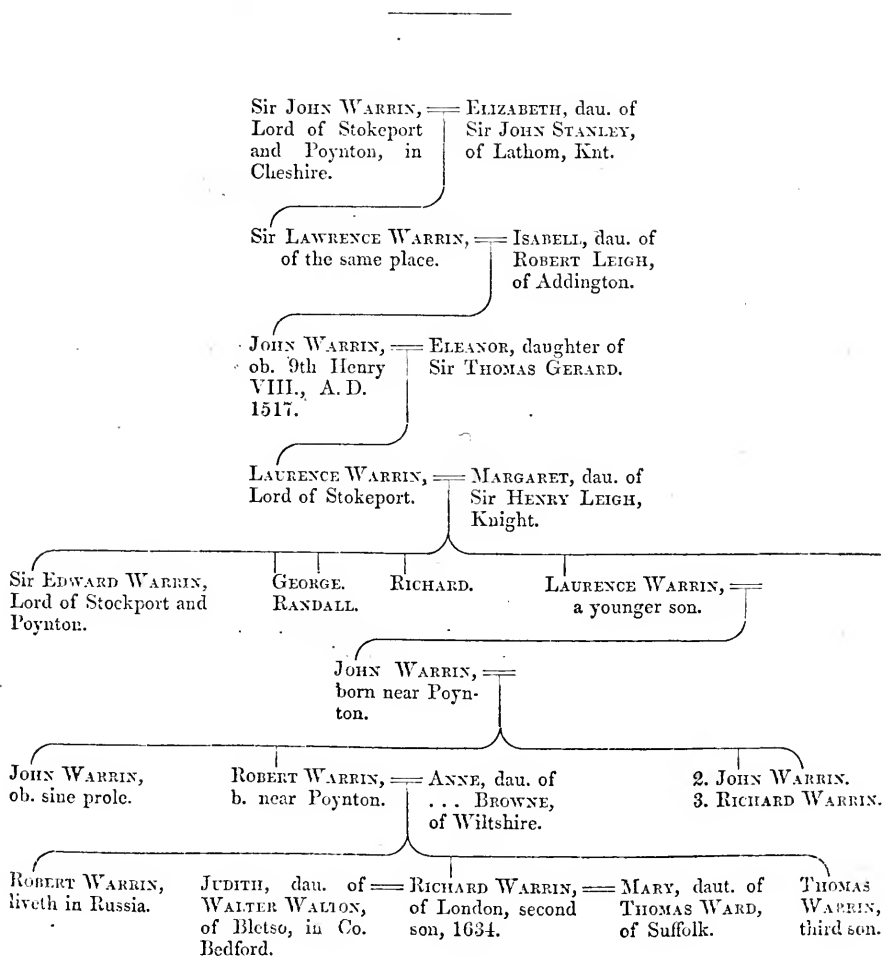 Sir JOHN WARRIN,
Lord of Stokeport
and Poynton, in
Cheshire.
ELIZABETH, dau. of
Sir JOHN STANLEY,
of Lathom, Knt.
Sir LAWRENCE WARRIN,
of the same place.
ISABELL, dau. of
ROBERT LEIGH,
of Addington.
JOHN WARRIN,
ob. 9th Henry
VIII., A. D.
1517.
ELEANOR, daughter of
Sir THOMAS GERARD.
LAURENCE WARRIN,
Lord of Stokeport.
MARGARET, dau. of
Sir HENRY LEIGH,
Knight.
Sir EDWARD WARRIN,
Lord of Stockport and
Poynton.
GEORGE.
RANDALL.
RICHARD.
LAURENCE WARRIN,
a younger son.
JOHN WARRIN,
born near Poyn-
ton.
JOHN WARRIN,
ob. sine prole.
ROBERT WARRIN,
b. near Poynton.
ANNE, dau. of
... BROWNE,
of Wiltshire.
2. JOHN WARRIN.
3. RICHARD WARRIN.
ROBERT WARRIN,
liveth in Russia.
JUDITH, dau. of
WALTER WALTON,
of Bletso, in Co.
Bedford.
RICHARD WARRIN,
of London, second
son, 1634.
MARY, daut. of
THOMAS WARD,
of Suffolk.
THOMAS
WARRIN,
third son.